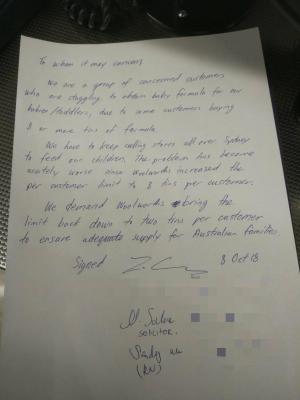 To whom it may concern,
We are a group of concerned customers
who are struggling to obtain baby formula for our
babies/toddlers, due to some customers buying
8 or more tins of formula.
We have to keep calling stores all over Sydney
to feed our children. The problem has become
acutely worse since woolworths increased the
per customer limit to 8 tins per customer.
We demand Woolworths bring the
limit back down to two tins per customer
to ensure adequate supply for Australian families
Signed
8 Oct 18
SOLICITOR.
(RN)